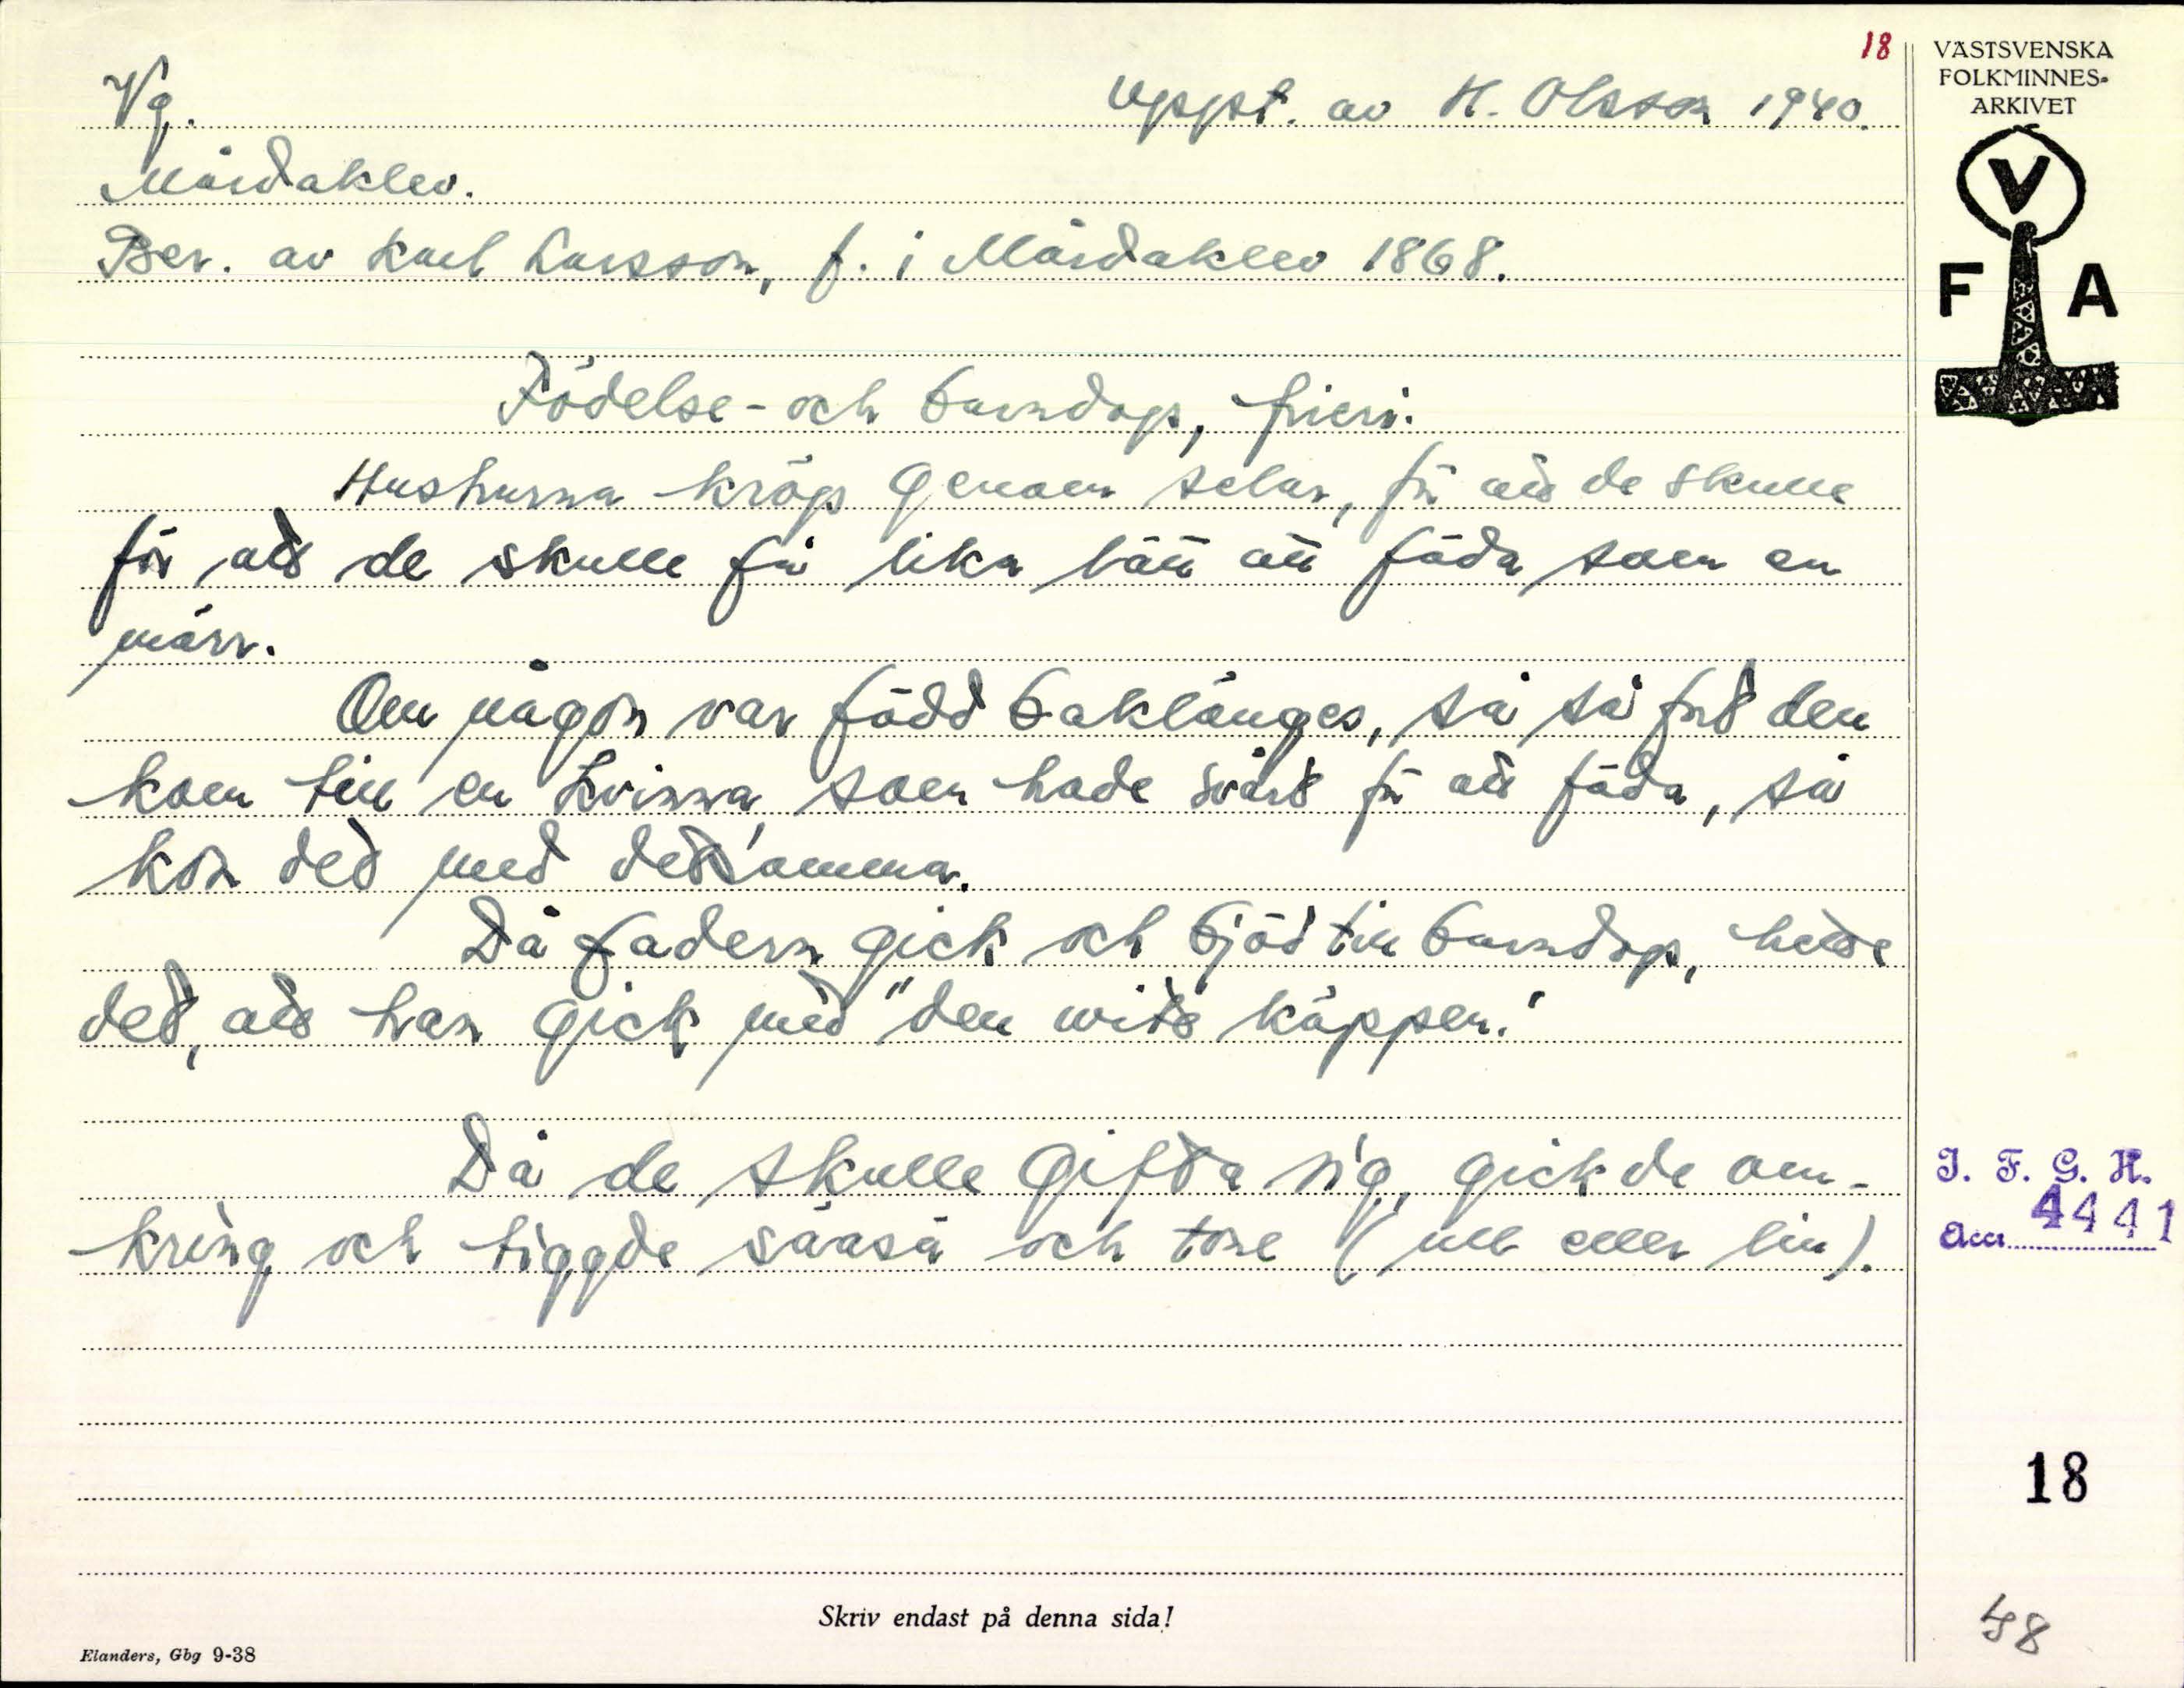 18
Vg.
Uppt. av H. Olsson 1940.
Mårdaklev.
Ber. av Karl Larsson, f. i Mårdaklev 1868.
Födelse- och barndop, frieri.
Hustrurna kröp genom selar, för att de skulle
för att de skulle få lika lätt att föda som en
märr.
Om någon var född baklänges, så så fort den
kom till en kvinna, som hade svårt för att föda, så
kom det med detsamma.
Då fadern gick och bjöd till barndop, hette
det, att han gick med "den wita käppen."
Då de skulle gifta sig, gick de om-
kring och tiggde såasä och tore (ull eller lin).
VÄSTSVENSKA
FOLKMINNES-
ARKIVET
V
F A
I. F. G. H.
Acc. 4441
18
48
Skriv endast på denna sida!
Elanders, Gbg 9-38